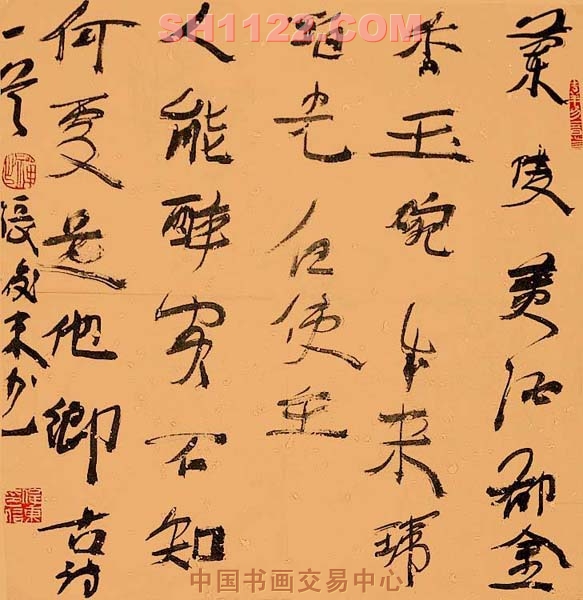 SH1122.COM
蘭陵美酒郁金
香玉碗盛来琥
珀光但使主
人能醉客不知
何處是他鄉古詩
一首
中国书画交易中心